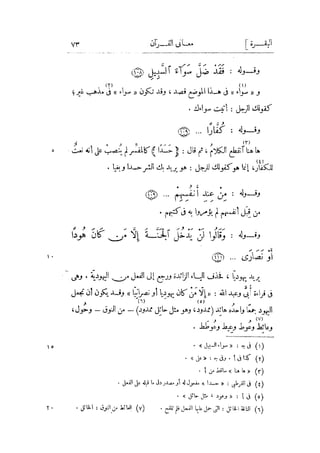 البقرة ] معانى القرآن ٧٣
وقوله : فَقَدْ ضَلَّ سَوَآءَ ٱلسَّبِيلِ (١٠٨)
و « سواء » فى هذا الموضع قصد ، وقد تكون « سواء » فى مذهب غير ؛
كقولك للرجل : أتيت سواءك .
وقوله : كُفَّارًا ... (١٠٩)
هاهنا انقطع الكلام ، ثم قال : ﴿ حَسَدًا ﴾ كالمفسر لم ينصب على أنه نعت ٥
للكفار ، إنما هو كقولك للرجل : هو يريد بك الشر حسدا وبغيا .
وقوله : مِنْ عِندِ أَنفُسِهِم ... (١٠٩)
من قِبَل أنفسهم لم يؤمروا به فى كتبهم .
وقوله : وَقَالُوا لَن يَدْخُلَ ٱلْجَنَّةَ إِلَّا مَن كَانَ هُودًا
أَوْ نَصَٰرَىٰ ... (١١١) ١٠
يريد يهوديا ، فحذف الياء الزائدة ورجع إلى الفعل من اليهودية . وهى
فى قراءة أُبىّ وعبد الله : « إلا من كان يهوديا أو نصرانيا » وقد يكون أن تجعل
اليهود جمعا واحده هائد (ممدود ، وهو مثل حائل ممدود) — من النوق — وحُول ،
وعائط وعُوط وعِيط وعُوطَط .
(١) فى جـ : « سواء السبيل » . ١٥
(٢) كذا فى أ . وفى جـ : « على » .
(٣) « ها هنا » ساقط من أ .
(٤) فى القرطبى : « حسدا » مفعول له أو مصدر دل ما قبله على الفعل .
(٥) فى أ : « وعود » مثل حائل » .
(٦) الناقة الحائل : التى حمل عليها الفحل فلم تلقح . (٧) العائط من النوق : الحائل . ٢٠